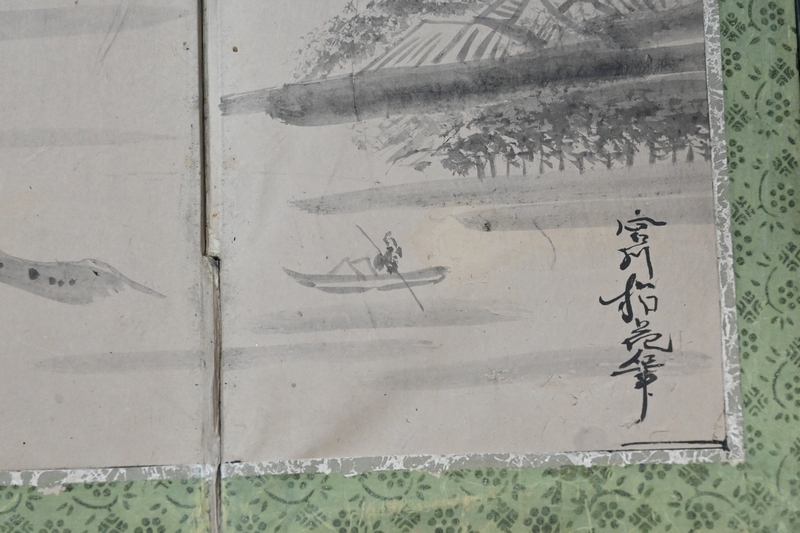 宮川柏花筆